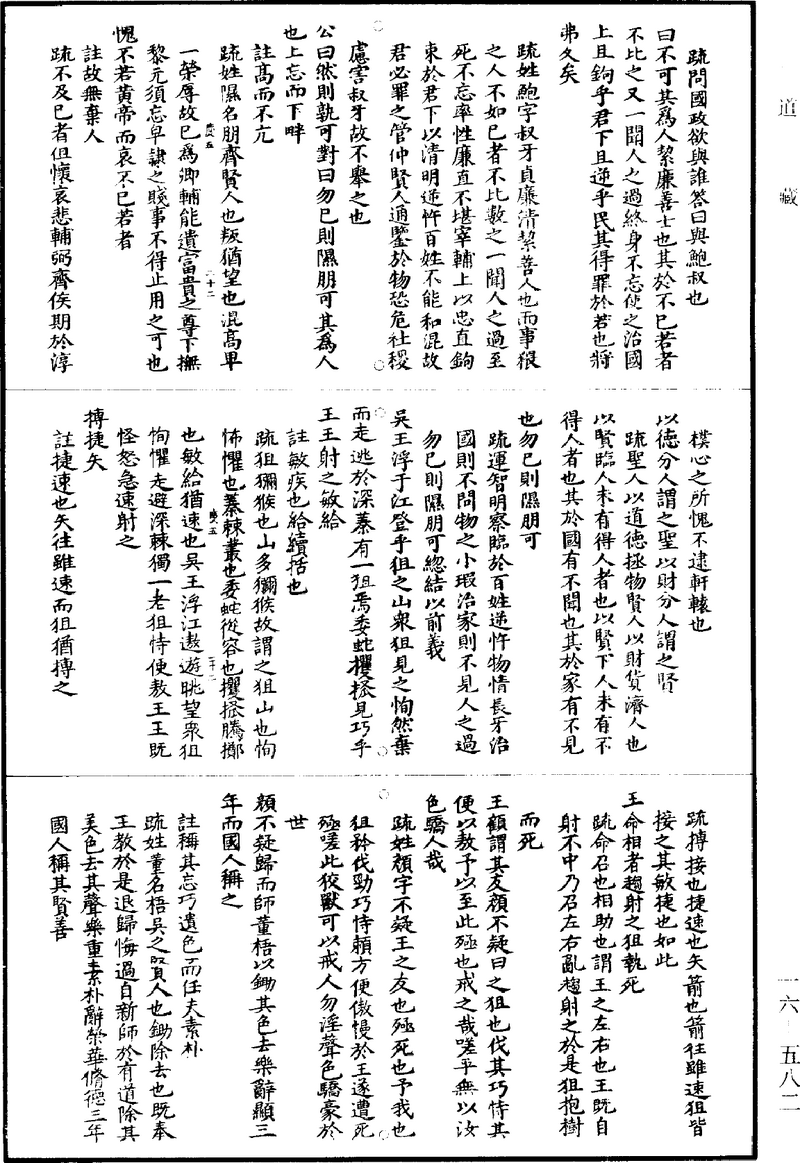 道藏
疏問國政欲與誰答曰與鮑叔也
曰不可其為人絜廉善士也其於不已若者
不比之又一聞人之過終身不忘使之治國
上且鉤乎君下且逆乎民其得罪於若也將
弗久矣
疏姓鮑字叔牙貞廉清絜善人也而事猥
之人不如已者不比數之一聞人之過至
死不忘率性廉直不堪宰輔上以忠直鉤
束於君下以清明逆忤百姓不能和混故
君必罪之管仲賢人通鑒於物恐危社稷
慮害叔牙故不舉之也
公曰然則孰可對曰勿已則隰朋可其為人
也上忘而下畔
註高而不亢
疏姓隰名朋齊賢人也叛猶望也混高卑
一榮辱故已為卿輔能遺富貴之尊下撫
黎元須忘皁隸之賤事不得止用之可也
愧不若黃帝而哀不已若者
註故無棄人
疏不及已者但懷哀悲輔弼齊侯期於淳
樸心之所愧不逮軒轅也
以德分人謂之聖以財分人謂之賢
疏聖人以道德拯物賢人以財貨濟人也
以賢臨人未有得人者也以賢下人未有不
得人者也其於國有不聞也其於家有不見
也勿已則隰朋可
疏運智明察臨於百姓逆忤物情長牙治
國則不問物之小瑕治家則不見人之過
勿已則隰朋可總結以前義
吳王浮于江登乎狙之山眾狙見之恂然棄
而走逃於深蓁有一狙焉委蛇攫搔見巧乎
王王射之敏給
註敏疾也給續括也
疏狙獼猴也山多獼猴故謂之狙山也恂
怖懼也蓁棘叢也委蛇從容也攫搔騰擲
也敏給猶速也吳王浮江遨遊眺望眾狙
恂懼走避深棘獨一老狙恃便敖王王既
怪怒急速射之
搏捷矢
註捷速也矢往雖速而狙猶搏之
疏搏接也捷速也矢箭也箭往雖速狙皆
接之其敏捷也如此
王命相者趨射之狙執死
疏命召也相助也謂王之左右也王既自
射不中乃召左右亂趨射之於是狙抱樹
而死
王顧謂其友顏不疑曰之狙也伐其巧恃其
便以敖予以至此殛也戒之哉嗟乎無以汝
色驕人哉
疏姓顏字不疑王之友也殛死也予我也
狙矜伐勁巧恃賴方便傲慢於王遂遭死
殛嗟此狡獸可以戒人勿淫聲色驕豪於
世
顏不疑歸而師董梧以鋤其色去樂辭顯三
年而國人稱之
註稱其忘巧遺色而任夫素朴
疏姓董名梧吳之賢人也鋤除去也既奉
王教於是退歸悔過自新師於有道除其
美色去其聲樂重素朴辭榮華脩德三年
國人稱其賢善
一六‐五八二